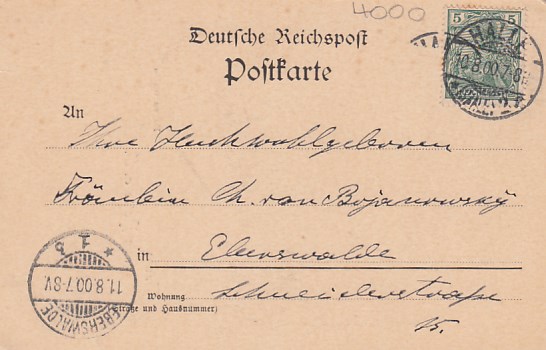 4000
Deutsche Reichspost
Postkarte
5 5
HALLE
10.8.00.7-8
An
Ihre Hochwohlgeboren
Fräulein Ch. von Bojanowsky
in Eberswalde
Wohnung
(Straße und Hausnummer)
Schneiderstraße
15.
* 1 3
11.8.00.7-8V.
EBERSWALDE